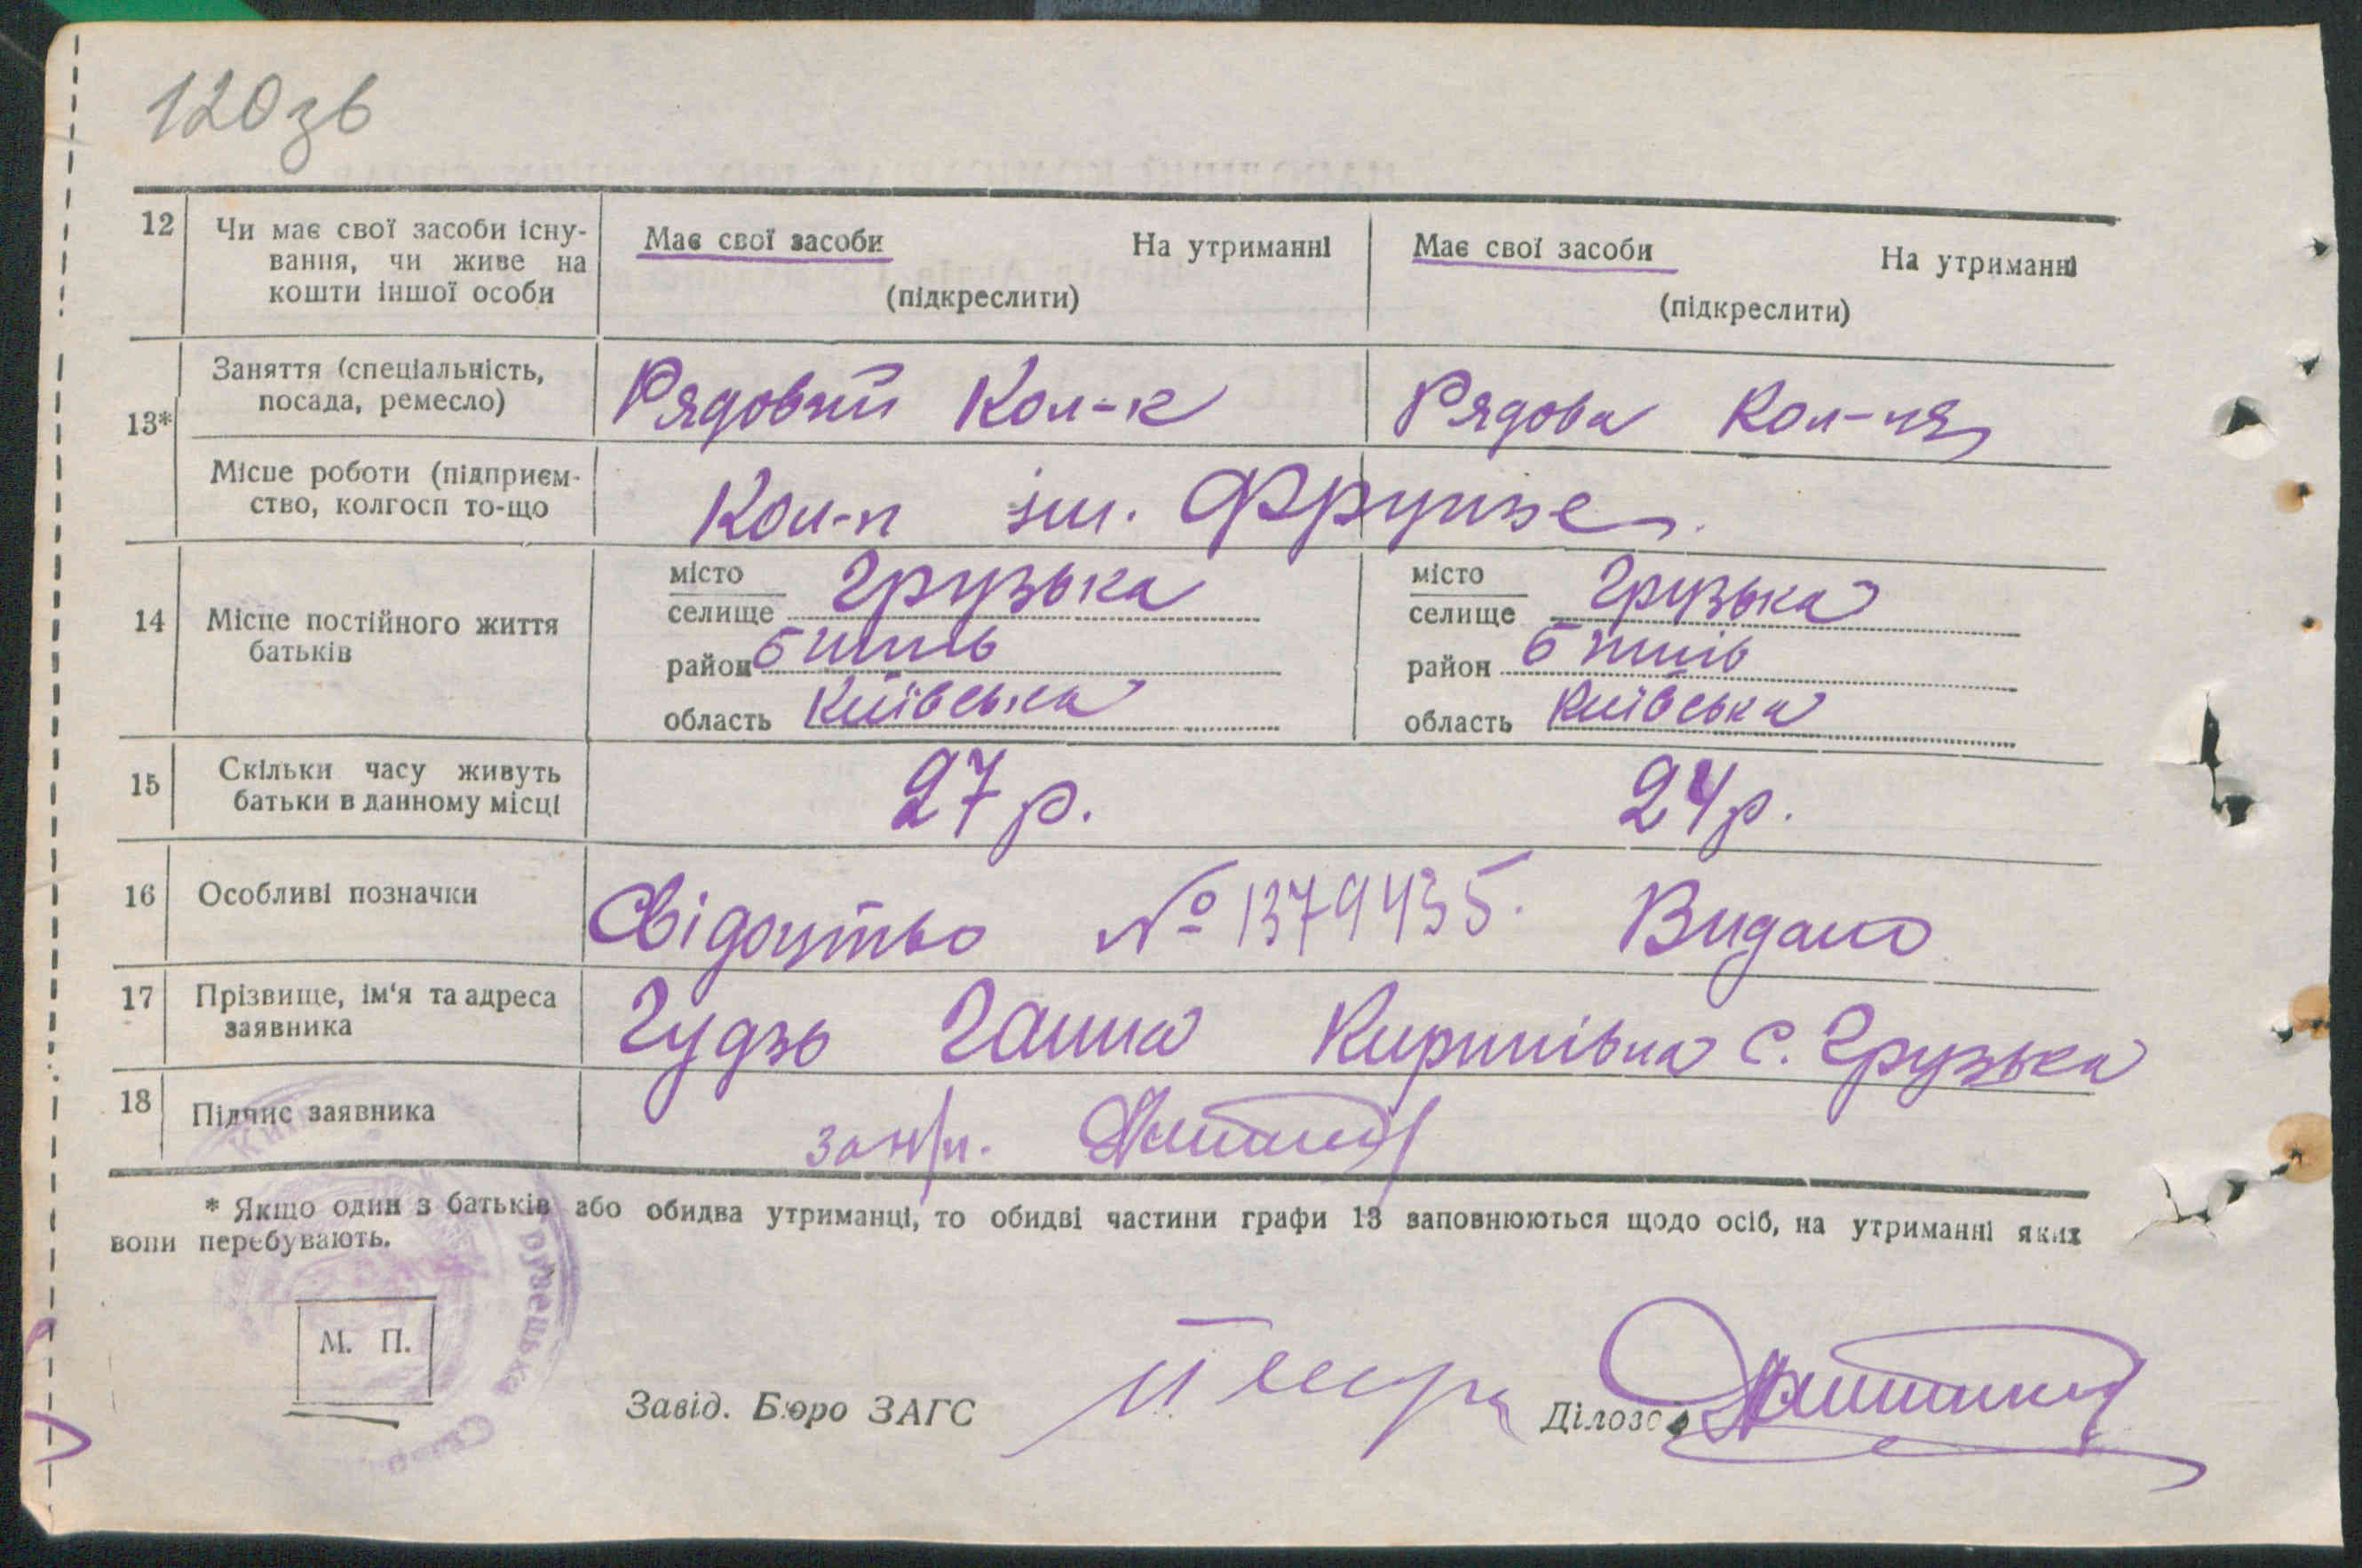 120зв
12 Чи має свої засоби існу-
вання, чи живе на
кошти іншої особи
Має свої засоби На утриманні
(підкреслити)
Має свої засоби На утриманні
(підкреслити)
13*
Заняття (спеціальність,
посада, ремесло)
Рядовий Кол-к
Рядова Кол-ця
Місце роботи (підприєм-
ство, колгосп то-що
Кол-п ім. Фрунзе.
14 Місце постійного життя
батьків
місто
селище Грузька
район
область Київська
місто
селище Грузька
район
область Київська
15 Скільки часу живуть
батьки в данному місці
27 р.
24 р.
16 Особливі позначки
Свідоцтво № 1379435. Видано
17 Прізвище, ім'я та адреса
заявника
Гудзь Ганна Кирилівна с. Грузька
18 Підпис заявника
* Якщо один з батьків або обидва утриманці, то обидві частини графи 13 заповнюються щодо осіб, на утриманні яких
вони перебувають.
М. П.
Завід. Бюро ЗАГС